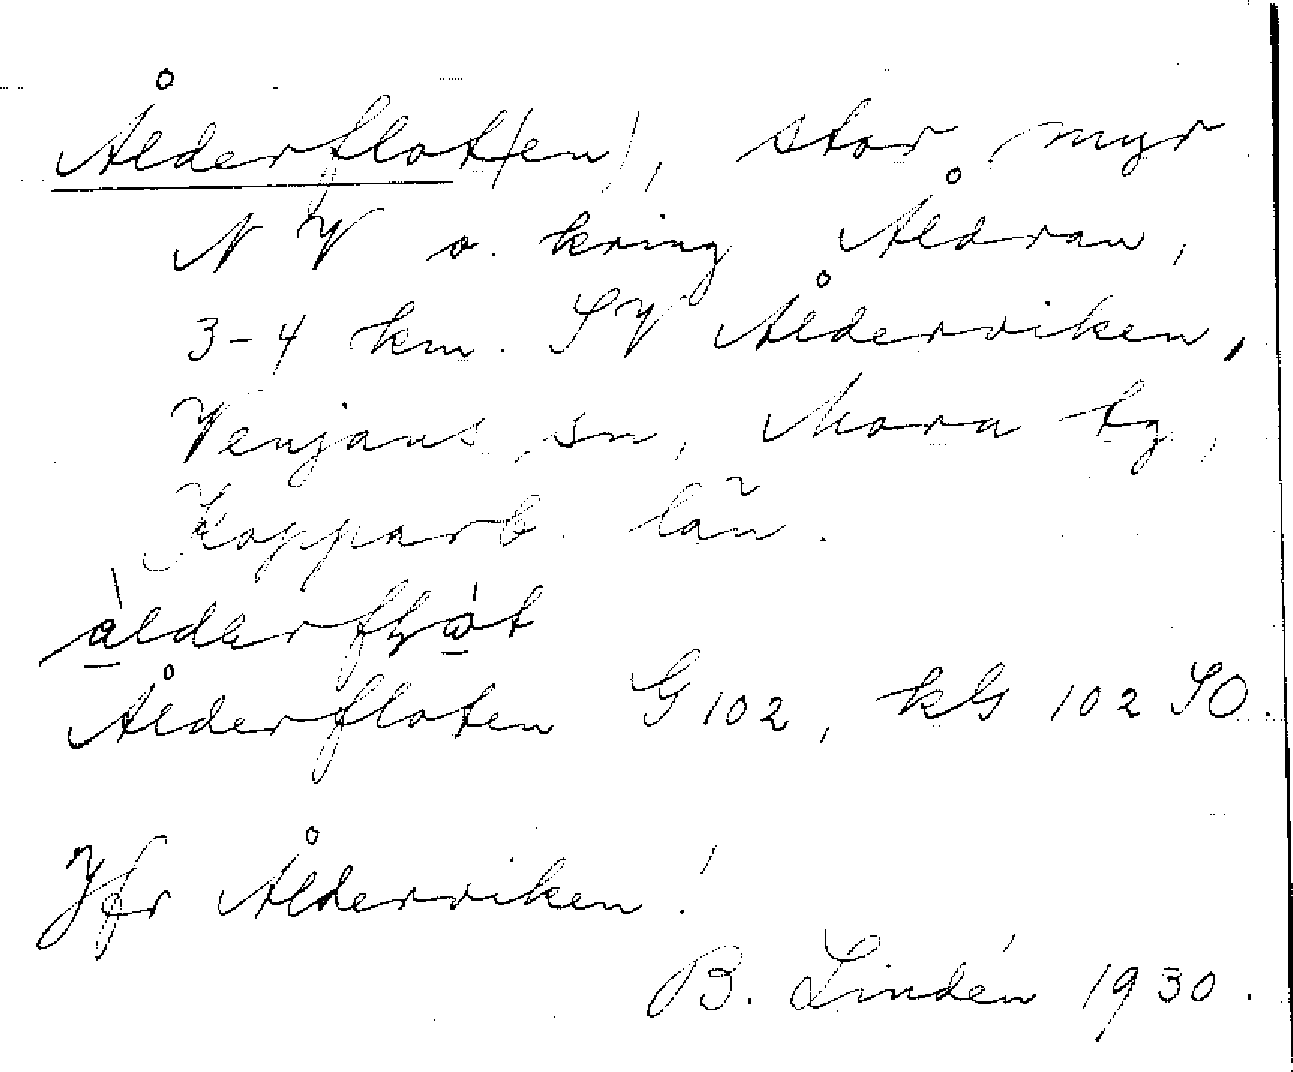 Ålderflot(en), stor myr
NV o. kring Åldran,
3-4 km. SV Ålderviken,
Venjans sn, Mora tg,
Kopparb. län.
Ålderfloten G 102, kG 102 SO.
Jfr Ålderviken!
B. Lindén 1930.